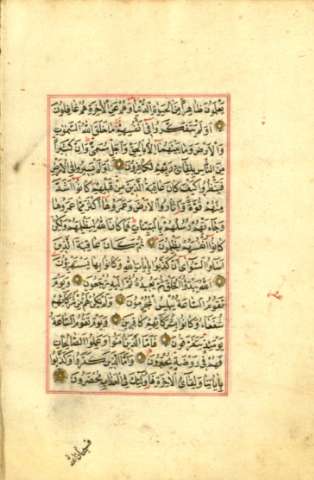 يعلمون ظاهرا من الحيوة الدنيا وهم عن الآخرة هم غافلون
اولم يتفكروا في انفسهم ما خلق الله السموات
والارض وما بينهما الا بالحق واجل مسمى وان كثيرا
من الناس بلقاء ربهم لكافرون اولم يسيروا في الارض
فينظروا كيف كان عاقبة الذين من قبلهم كانوا اشد
منهم قوة واثاروا الارض وعمروها اكثر مما عمروها
وجاءتهم رسلهم بالبينات فما كان الله ليظلمهم ولكن
كانوا انفسهم يظلمون ثم كان عاقبة الذين
اساؤا السوأى ان كذبوا بآيات الله وكانوا بها يستهزؤن
الله يبدؤا الخلق ثم يعيده ثم اليه ترجعون ويوم
تقوم الساعة يبلس المجرمون ولم يكن لهم من شركائهم
شفعاء وكانوا بشركائهم كافرين ويوم تقوم الساعة
يومئذ يتفرقون فاما الذين آمنوا وعملوا الصالحات
فهم في روضة يحبرون واما الذين كفروا وكذبوا
بآياتنا ولقاء الآخرة فاولئك في العذاب محضرون
فسبحان الله